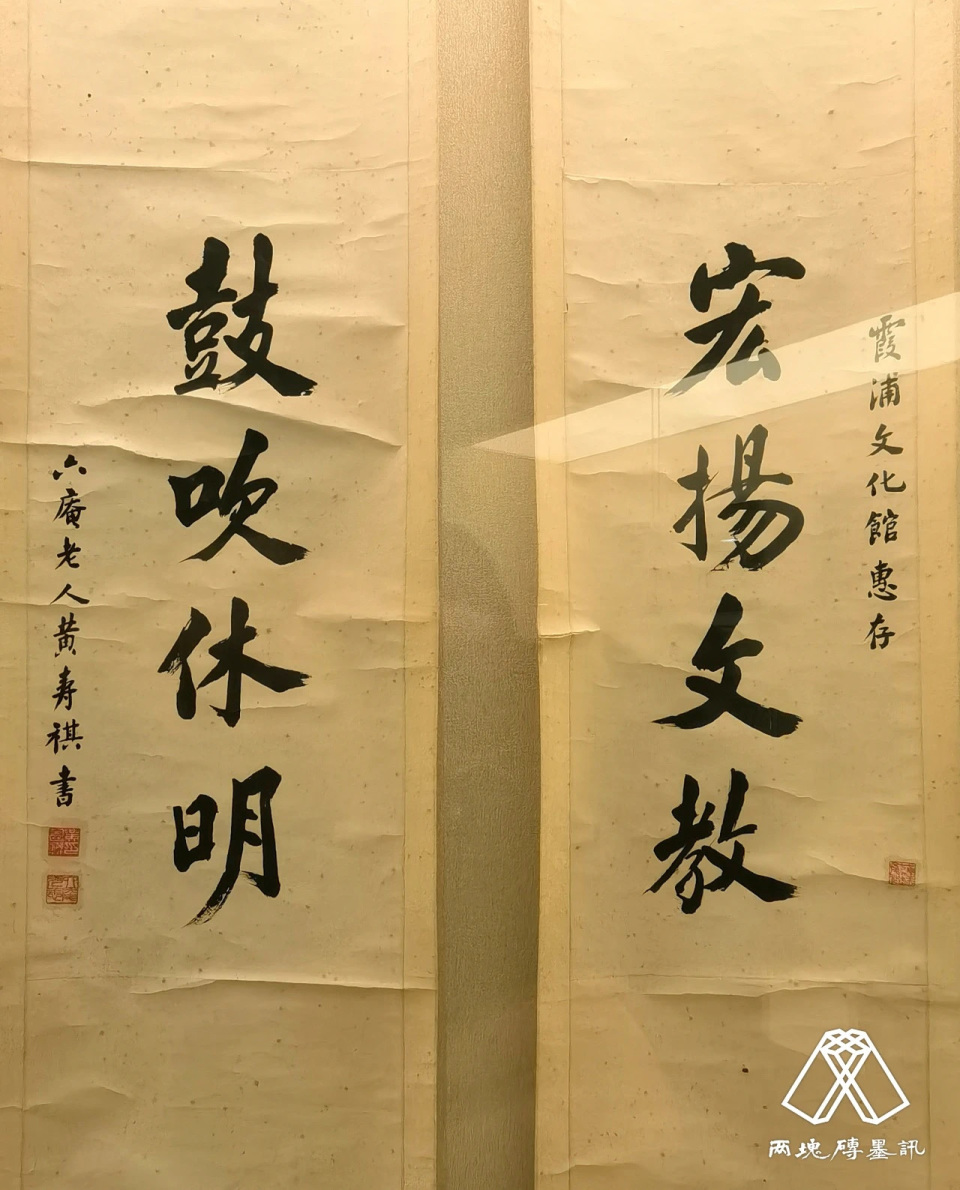 霞浦文化館惠存
宏揚文教
鼓吹休明
六庵老人黄寿祺书
两塊磚墨訊